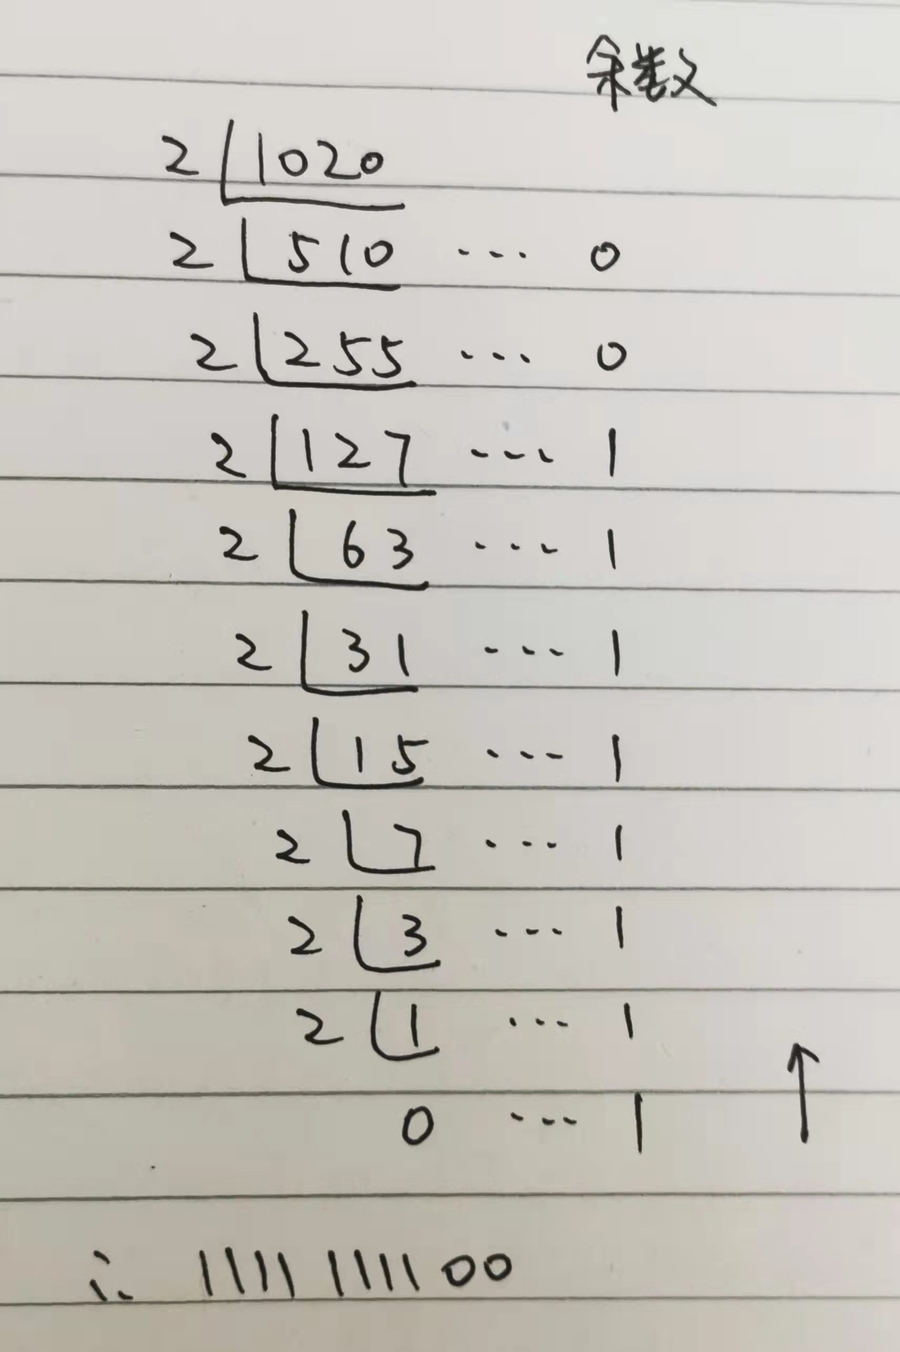 余数
2 1020
2 510 ... 0
2 255 ... 0
2 127 ... 1
2 63 ... 1
2 31 ... 1
2 15 ... 1
2 7 ... 1
2 3 ... 1
2 1 ... 1
0 ... 1 ↑
∴ 1111 111100